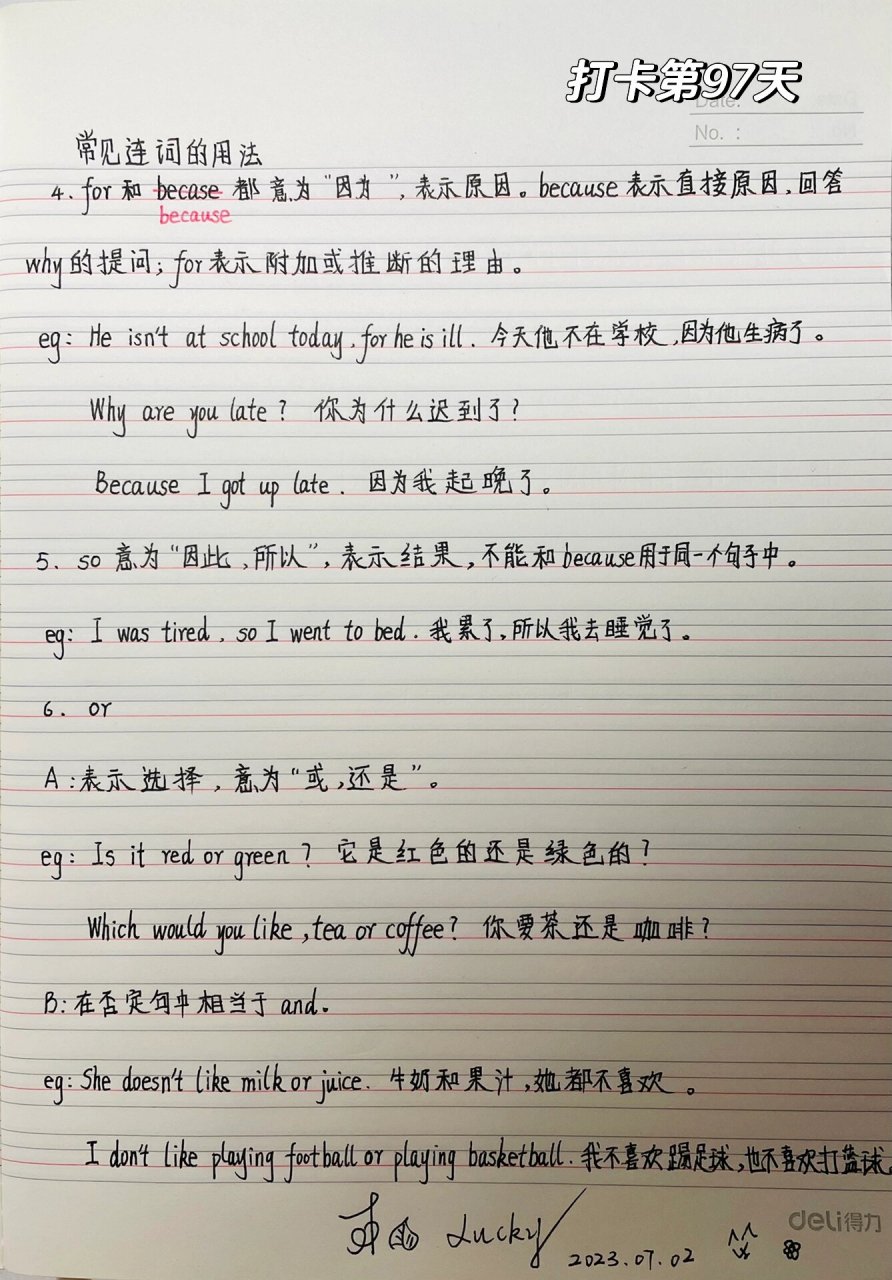 打卡第97天
Date:
No. :
常见连词的用法
4. for 和 becase 都意为“因为”，表示原因。because 表示直接原因，回答
because
why的提问；for表示附加或推断的理由。
eg: He isn't at school today, for he is ill. 今天他不在学校，因为他生病了。
Why are you late? 你为什么迟到了？
Because I got up late. 因为我起晚了。
5. so 意为“因此，所以”，表示结果，不能和because用于同一个句子中。
eg: I was tired, so I went to bed. 我累了，所以我去睡觉了。
6. or
A：表示选择，意为“或，还是”。
eg: Is it red or green? 它是红色的还是绿色的？
Which would you like, tea or coffee? 你要茶还是咖啡？
B：在否定句中相当于 and.
eg: She doesn't like milk or juice. 牛奶和果汁，她都不喜欢。
I don't like playing football or playing basketball. 我不喜欢踢足球，也不喜欢打篮球。
deli得力
Lucky
2023.07.02